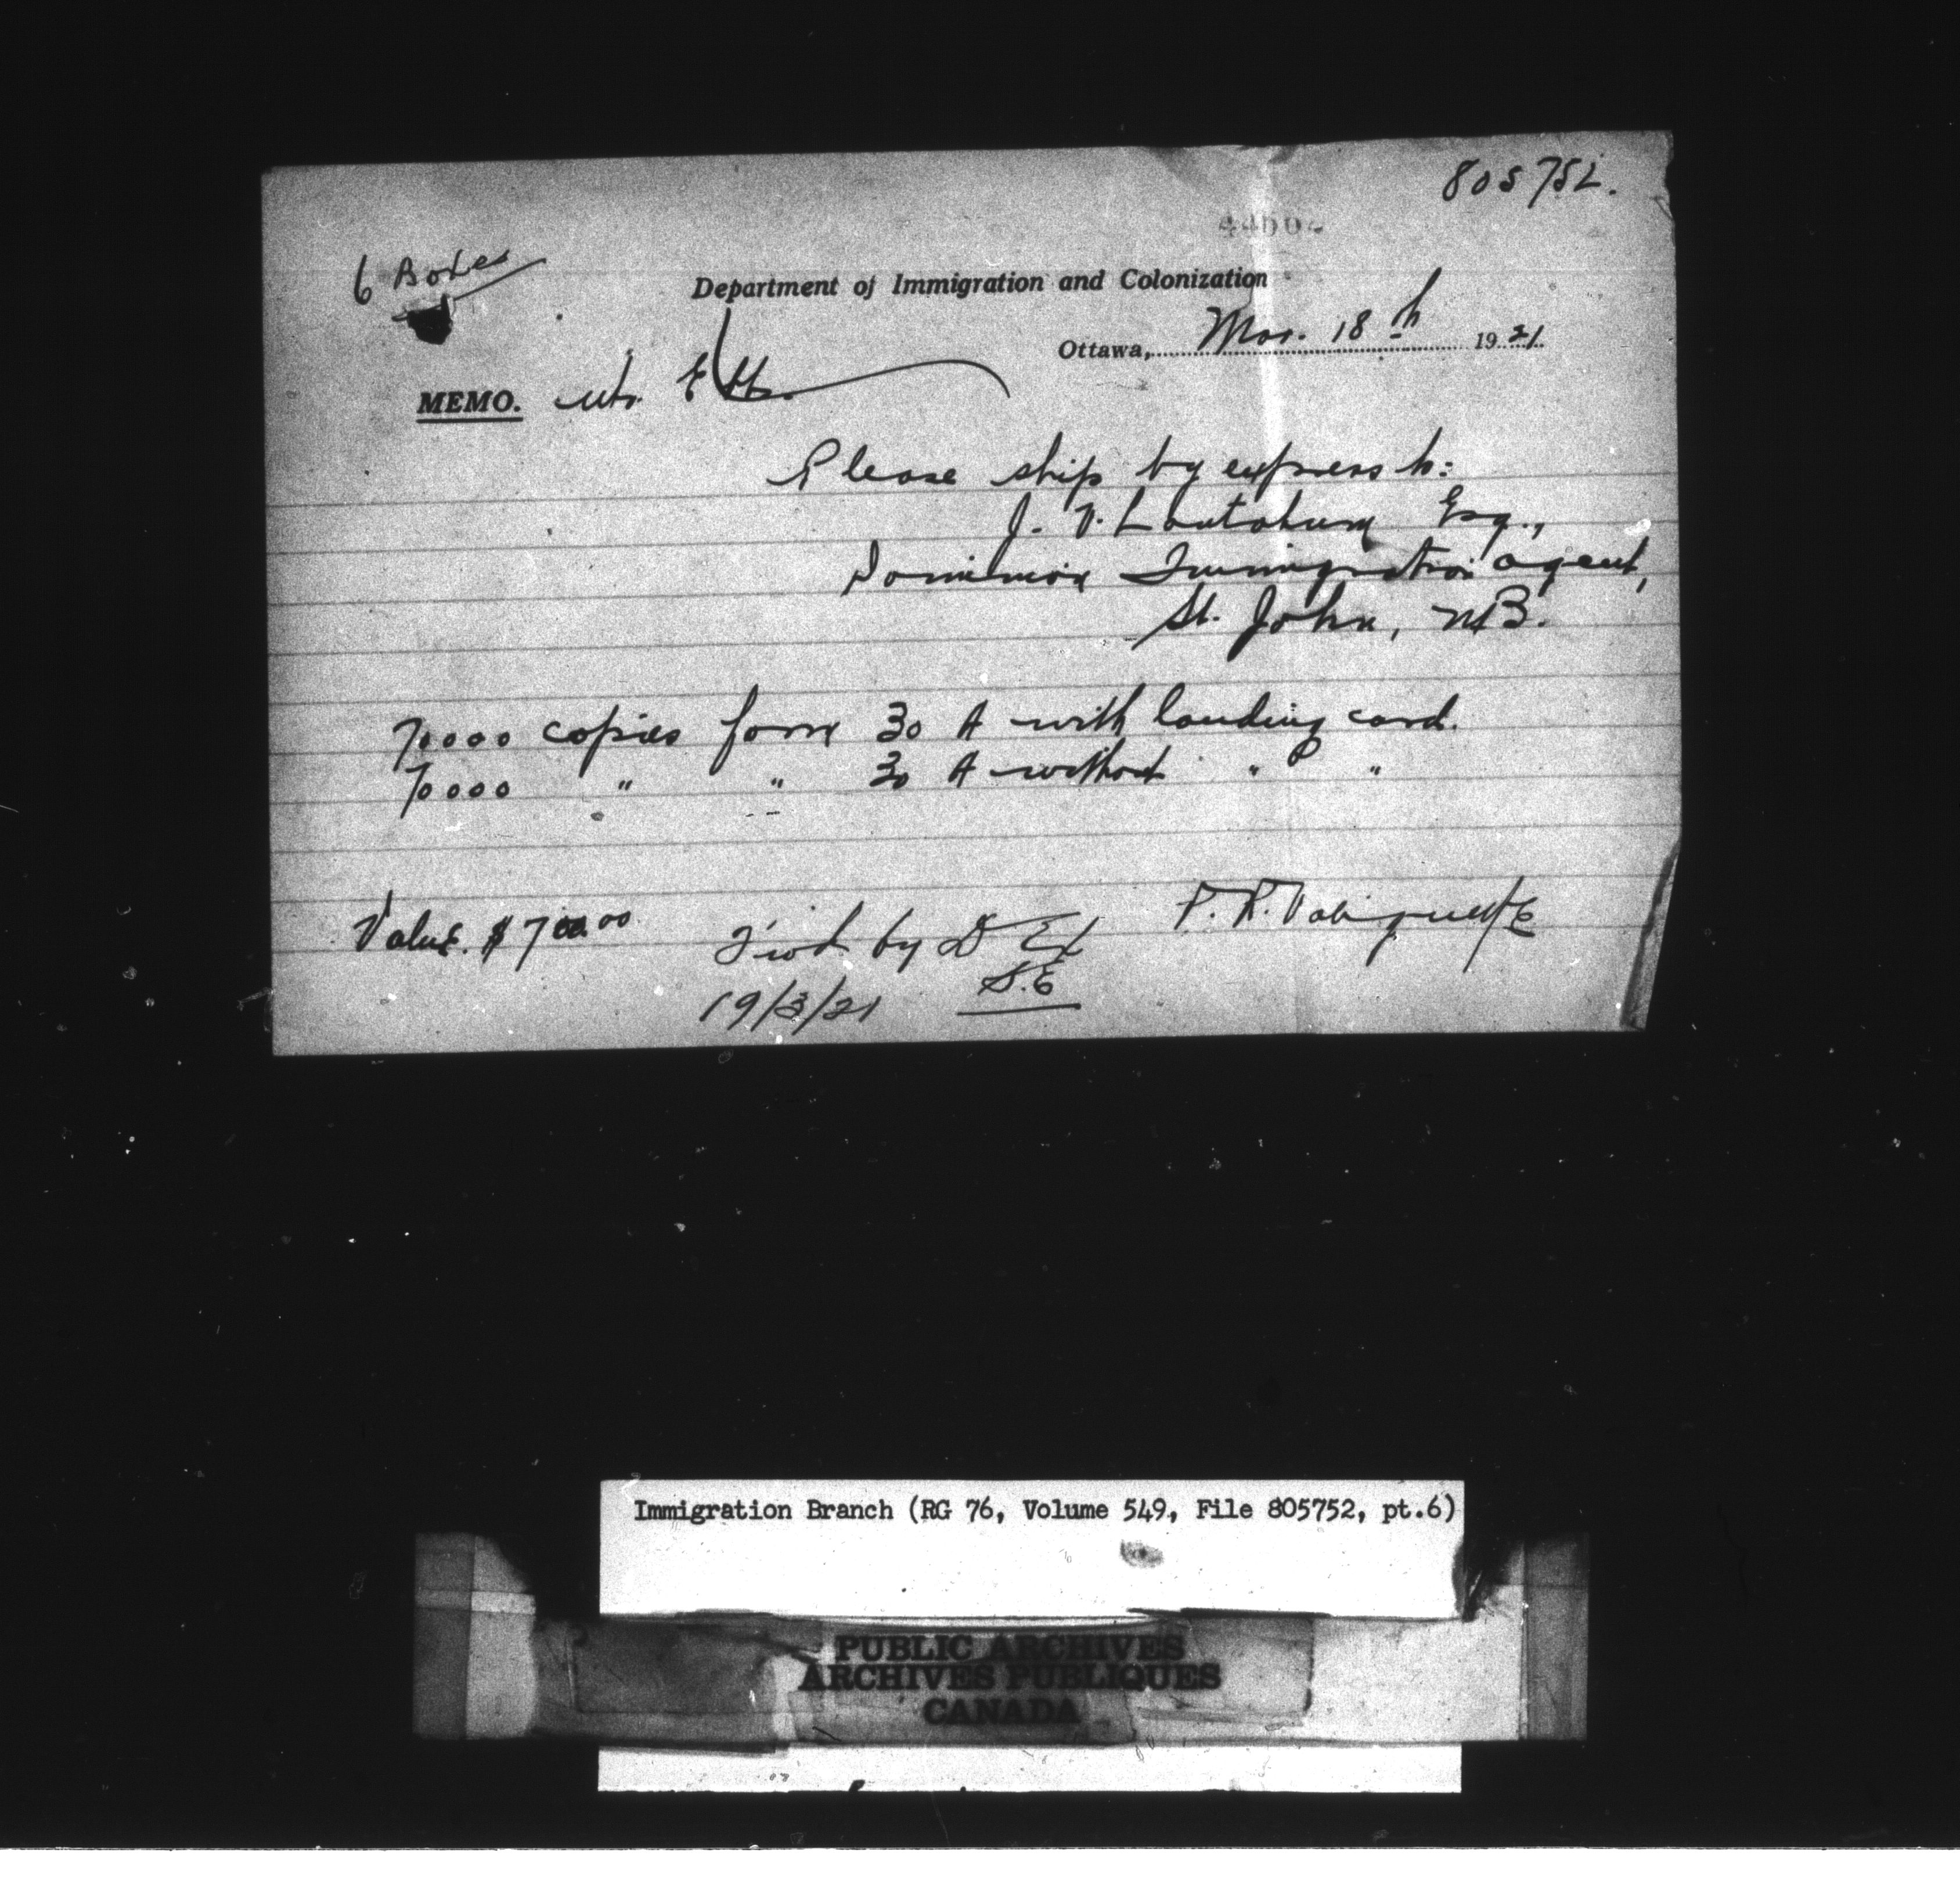 805752.
6 Boxes
Department of Immigration and Colonization
Ottawa, Mar. 18th 1921
MEMO. Mr.
Please ship by express to:
J. V. Lantalum Esq.,
Dominion Immigration agent,
St. John, N.B.
70000 copies form 30 A with landing card.
70000 " " 30 A without " "
Value. $700.00
by D Ex
P. R.
S.E
19/3/21
Immigration Branch (RG 76, Volume 549, File 805752, pt.6)
PUBLIC ARCHIVES
ARCHIVES PUBLIQUES
CANADA